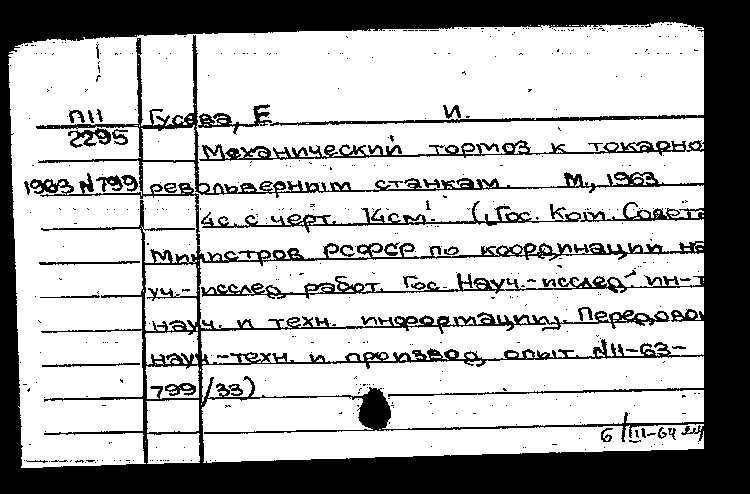 ПII Гусева, Е. И.
2295 Механический тормоз к токарно
1963 N 799 револьверным станкам. М., 1963.
4с. с черт. 14см. (Гос. Ком. Совета
Министров РСФСР по координации на
уч.-исслед. работ. Гос. Науч.-исслед. ин-т
науч. и техн. информации). Передовой
науч.-техн. и производ. опыт. N11-63-
799/33)
6/III-64